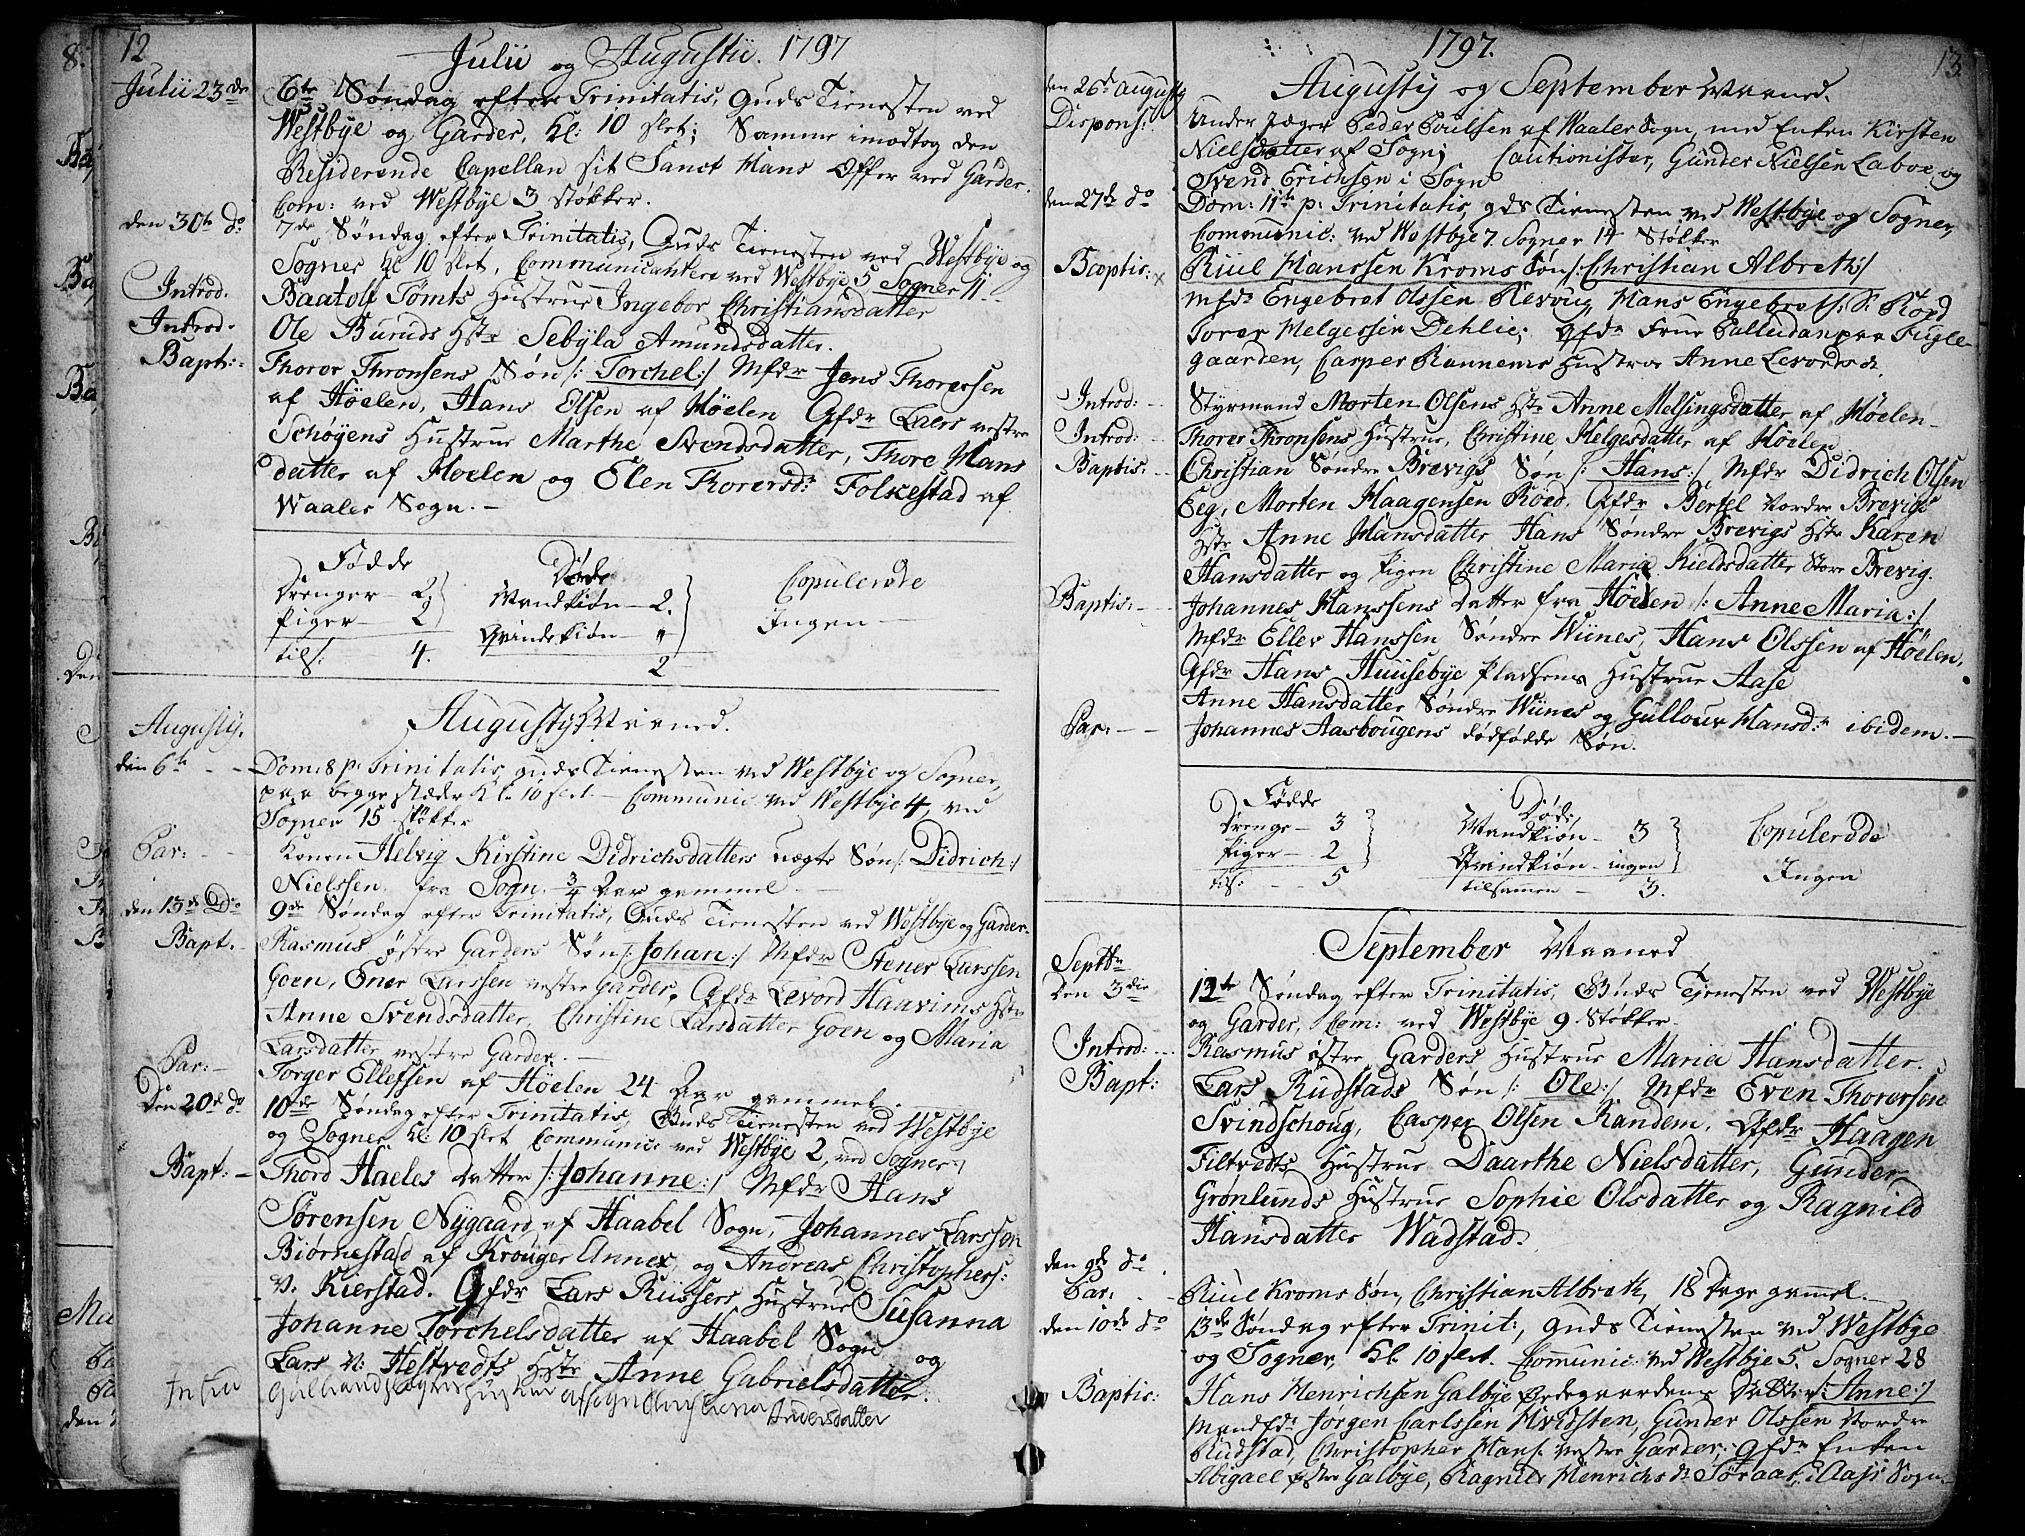 12
Julii og Augustii. 1797
Julii 23de
6te Søndag efter Trinitatis, Guds Tienesten ved
Westbye og Garder, Kl: 10 slet; Samme imodtog den
Residerende Capellan sit Sanct Hans Offer ved Garder.
Com: ved Westbye 3 Støkker.
den 30te do
7de Søndag efter Trinitatis, Guds Tienesten ved Westbye og
Sogner kl 10 slet, Communicantere ved Westbye 5 Sogner 11.
Introd. Baatolf Tømts Hustrue Ingebor Christiansdatter
Introd. Ole Buruds Hstr Sebÿla Amundsdatter.
Bapt: Thorer Thronsens Søn /: Torchel :/ Mfdr Jens Thorersen
af Høelen, Hans Olsen af Høelen Qfdr Lars vestre
Schøyens Hustrue Marthe Svendsdatter, Thore Hans
datter af Høelen og Elen Thorersdr Folkestad af
Waaler Sogn. -
Fødde
Drenger - 2
Piger - 2
tils: 4.
Døde
Mandkiøn - 2.
Qvindekiøn - "
2
Copulerede
Ingen -
Augusty Maaned.
Augusty.
den 6te
Dom: 8 p: Trinitatis, guds Tienesten ved Westbye og Sogner,
paa begge stæder Kl. 10 slet. - Communic: ved Westbye 4, ved
Sogner 15 støkker
Par: Konen Helvig Kirstine Didrichsdatters uægte Søn /: Didrich :/
Nielssen fra Sogn. 3/4 Aar gammel -
den 13de Do 9de Søndag efter Trinitatis, Guds Tienesten ved Westbye og Garder.
Bapt. Rasmus østre Garders Søn /: Johan :/ Mfdr Stener Larssen
Goen, Ener Larssen vestre Garder, Qfdr Levord Haavims Hstr
Anne Svendsdatter, Christine Larsdatter Goen og Maria
Larsdatter vestre Garder. -
Par: Torger Ellefsen af Høelen 24 Aar gammel.
Den 20de do 10de Søndag efter Trinitatis, Guds Tienesten ved Westbye
og Sogner, kl: 10 slet Communic: ved Westbye 2, ved Sogner
Bapt: Thord Haeles Datter /: Johanne :/ Mfdr Hans
Sørensen Nygaard af Haabel Sogn, Johannes Larsson
Biørnestad af Krouger Annex, og Andreas Christophers:
v. Kierstad. Qfdr Lars Russers Hustrue Susanna
Johanne Torchelsdatter af Haabel Sogn og
Lars v: Hestvedts Hstr Anne Gabrielsdatter.
Andersdatter
1797. 13.
Augusty og September Maaned.
den 26de Augusty
Dispons: Under Jæger Peder Poulsen af Waaler Sogn, med Enken Kirsten
Nielsdatter af Sogn; Cautionister, Gunder Nielsen Laboe og
Svend Erichsen i Sogn
den 27de do Dom: 11te p: Trinitatis, gds Tienesten ved Westbye og Sogner,
Communic: ved Westbye 7. Sogner 14 Støkker
Baptis: x Riul Hanssen Kroms Søn /: Christian Albreth :/
mfdr Engebret Olssen Rervig, Hans Engebretss: S: Roed
Torer Helgessen Dehlie; Qfdr Frue Palludan paa Fugle-
gaarden, Casper Rannems Hustrue Anne Levordsdr
Introd: Styrmand Morten Olsens Hstr Anne Melsingsdatter af Høelen
Introd: Thorer Thronsens Hustrue, Christine Helgesdatter af Høelen
Baptis: Christian Søndre Brevigs Søn /: Hans :/ Mfdr Didrich Olsen
Eeg, Morten Haagensen Roed, Qfdr Bertel Nordre Brevigs
Hstr Anne Hansdatter Hans Søndre Brevigs Hstr Karen
Hansdatter og Pigen Christine Maria Kieldsdatter Store Brevig.
Baptis: Johannes Hanssens Datter fra Høelen /: Anne Maria :/
Mfdr Ellev Hanssen Søndre Wiines, Hans Olssen af Høelen,
Qfdr Hans Huusebye Pladsens Hustrue Aase
Anne Hansdatter Søndre Wiines og Gullour Hansdr ibidem. -
Par: Johannes Aasbougens dødfødde Søn.
Fødde
Drenge - 3
Piger - 2
tils: 5
Døde
Mandkiøn - 3
Qvindkiøn - ingen
tilsamen - 3.
Copulerede
Ingen
September Maaned
Septbr
Den 3die 12te Søndag efter Trinitatis, Guds Tjenesten ved Westbye
og Garder, Com: ved Westbye 9 Støkker.
Introd: Rasmus østre Garders Hustrue Maria Hansdatter.
Bapt: Lars Rudstads Søn /: Ole :/ Mfdr Even Thorersen
Svindschoug, Casper Olsen Randem, Qfdr Haagen
Filtvedts Hustrue Daarthe Nielsdatter, Gunder
Grønlunds Hustrue Sophie Olsdatter og Ragnild
Hansdatter Wadstad.
den 9de do
Par: Riul Kroms Søn, Christian Albreth, 18 Dage gammel. -
den 10de do 13de Søndag efter Trinit:, Guds Tienesten ved Westbye
og Sogner, Kl. 10 slet. Communic: ved Westbye 5. Sogner 28
Baptis: Hans Henrichsen Galbye Ødegaardens Datter /: Anne :/
Mandfdr Jørgen Carlssen Hvidsten, Gunder Olssen Nordre
Rudstad, Christopher Hans: vestre Garder; Qfdr Enken
Abigael østre Galbye, Ragnild Henrichsdr Søraas, i Aass Sogn